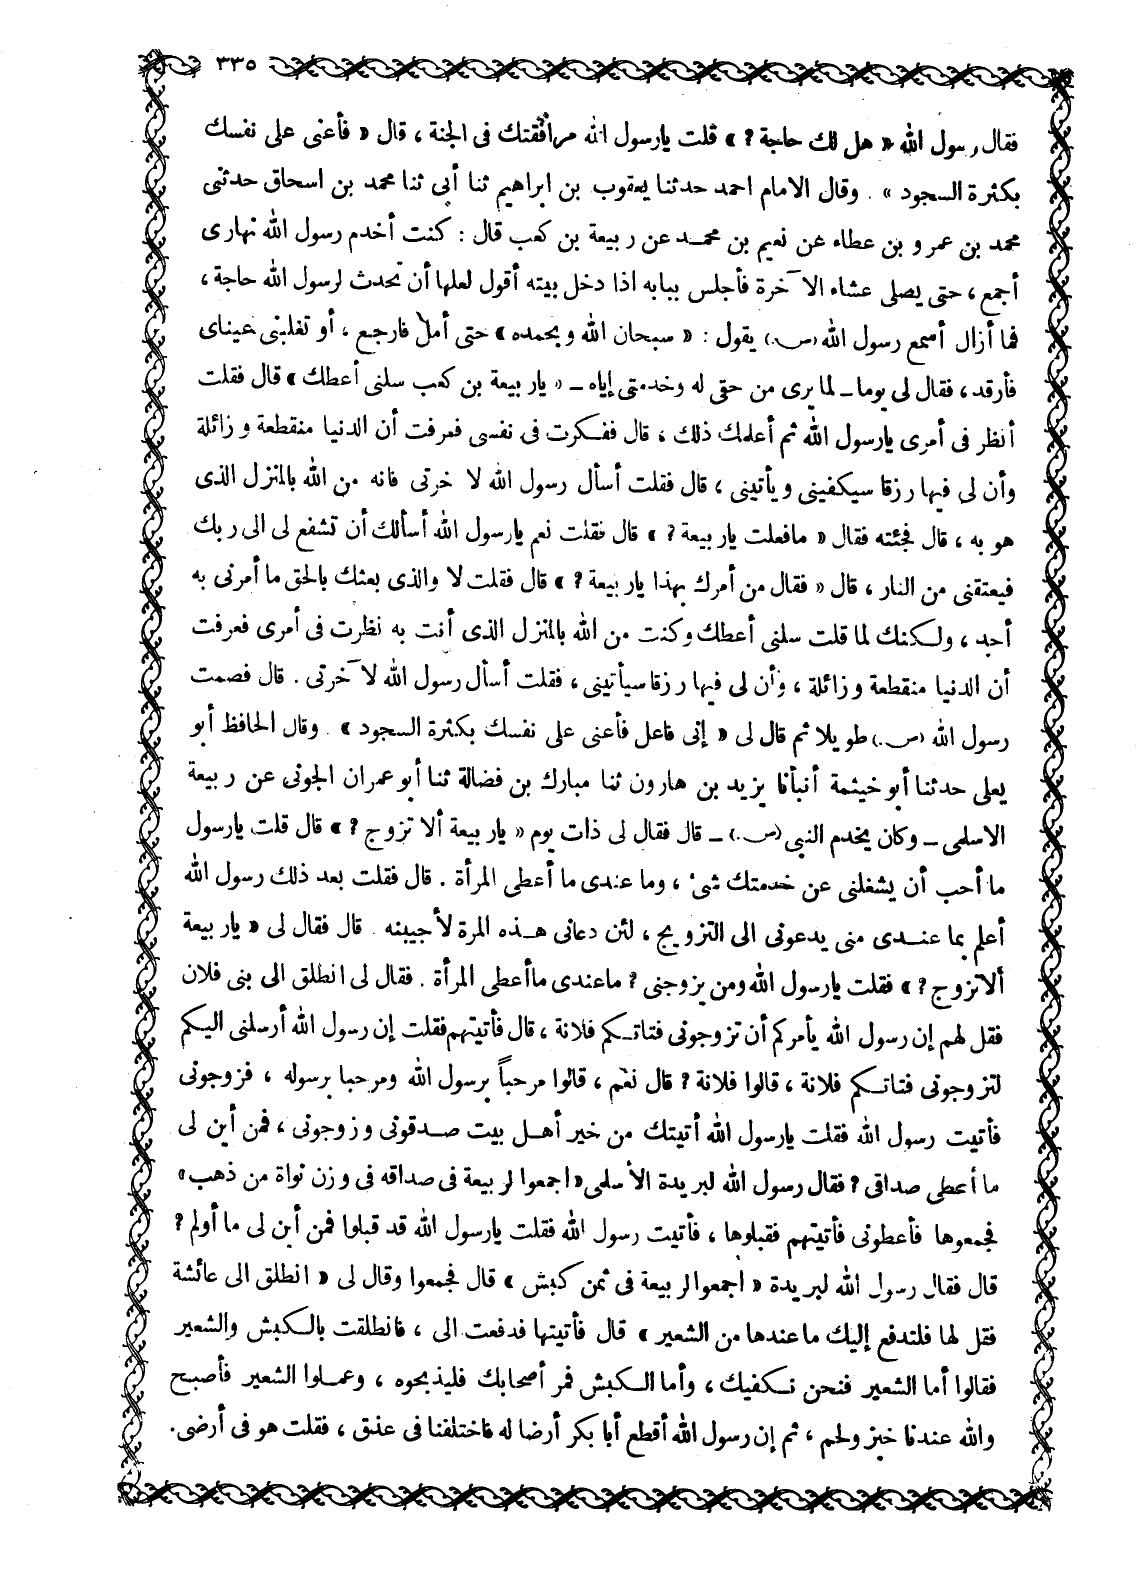 ٣٣٥
فقال رسول الله « هل لك حاجة ? » قلت يارسول الله مرافقتك فى الجنة ، قال « فأعنى على نفسك
بكثرة السجود » . وقال الامام احمد حدثنا يعقوب بن ابراهيم ثنا أبى ثنا محمد بن اسحاق حدثنى
محمد بن عمرو بن عطاء عن نعيم بن محمد عن ربيعة بن كعب قال : كنت أخدم رسول الله نهارى
أجمع ، حتى يصلى عشاء الآخرة فأجلس ببابه اذا دخل بيته أقول لعلها أن تحدث لرسول الله حاجة ،
فما أزال أسمع رسول الله (ص.) يقول : « سبحان الله وبحمده » حتى أمل فارجع ، أو تغلبنى عيناى
فأرقد ، فقال لى يوما ـ لما يرى من حقى له وخدمتى إياه ـ « ياربيعة بن كعب سلنى أعطك » قال فقلت
أنظر فى أمرى يارسول الله ثم أعلمك ذلك ، قال ففكرت فى نفسى فعرفت أن الدنيا منقطعة وزائلة
وأن لى فيها رزقا سيكفينى ويأتينى ، قال فقلت أسأل رسول الله لآ خرتى فانه من الله بالمنزل الذى
هو به ، قال فجئته فقال « مافعلت ياربيعة ? » قال فقلت نعم يارسول الله أسألك أن تشفع لى الى ربك
فيعتقنى من النار ، قال « فقال من أمرك بهذا ياربيعة ? » قال فقلت لا والذى بعثك بالحق ما أمرنى به
أحد ، ولكنك لما قلت سلنى أعطك وكنت من الله بالمنزل الذى أنت به نظرت فى أمرى فعرفت
أن الدنيا منقطعة وزائلة ، وأن لى فيها رزقا سيأتينى ، فقلت أسأل رسول الله لآخرتى . قال فصمت
رسول الله (ص.) طويلا ثم قال لى « إنى فاعل فأعنى على نفسك بكثرة السجود » . وقال الحافظ أبو
يعلى حدثنا أبو خيثمة أنبأنا يزيد بن هارون ثنا مبارك بن فضالة ثنا أبو عمران الجونى عن ربيعة
الاسلمى ـ وكان يخدم النبى (ص.) ـ قال فقال لى ذات يوم « ياربيعة ألا تزوج ? » قال قلت يارسول
ما أحب أن يشغلنى عن خدمتك شىء ، وما عندى ما أعطى المرأة . قال فقلت بعد ذلك رسول الله
أعلم بما عندى منى يدعونى الى التزويج ، لئن دعانى هذه المرة لأجيبنه . قال فقال لى « ياربيعة
ألاتزوج ? » فقلت يارسول الله ومن يزوجنى ? ماعندى ماأعطى المرأة . فقال لى انطلق الى بنى فلان
فقل لهم إن رسول الله يأمركم أن تزوجونى فتاتكم فلانة ، قال فأتيتهم فقلت إن رسول الله أرسلنى اليكم
لتزوجونى فتاتكم فلانة ، قالوا فلانة ? قال نعم ، قالوا مرحباً برسول الله ومرحبا برسوله ، فزوجونى
فأتيت رسول الله فقلت يارسول الله أتيتك من خير أهل بيت صدقونى وزوجونى ، فمن أين لى
ما أعطى صداقى ? فقال رسول الله لبريدة الأسلمى « اجمعوا لربيعة فى صداقه فى وزن نواة من ذهب »
فجمعوها فأعطونى فأتيتهم فقبلوها ، فأتيت رسول الله فقلت يارسول الله قد قبلوا فمن أين لى ما أولم ?
قال فقال رسول الله لبريدة « اجمعوا لربيعة فى ثمن كبش » قال فجمعوا وقال لى « انطلق الى عائشة
فقل لها فلتدفع إليك ما عندها من الشعير » قال فأتيتها فدفعت الى ، فانطلقت بالكبش والشعير
فقالوا أما الشعير فنحن نكفيك ، وأما الكبش فمر أصحابك فليذبحوه ، وعملوا الشعير فأصبح
والله عندنا خبز ولحم ، ثم إن رسول الله أقطع أبا بكر أرضا له فاختلفنا فى عذق ، فقلت هو فى أرضى.